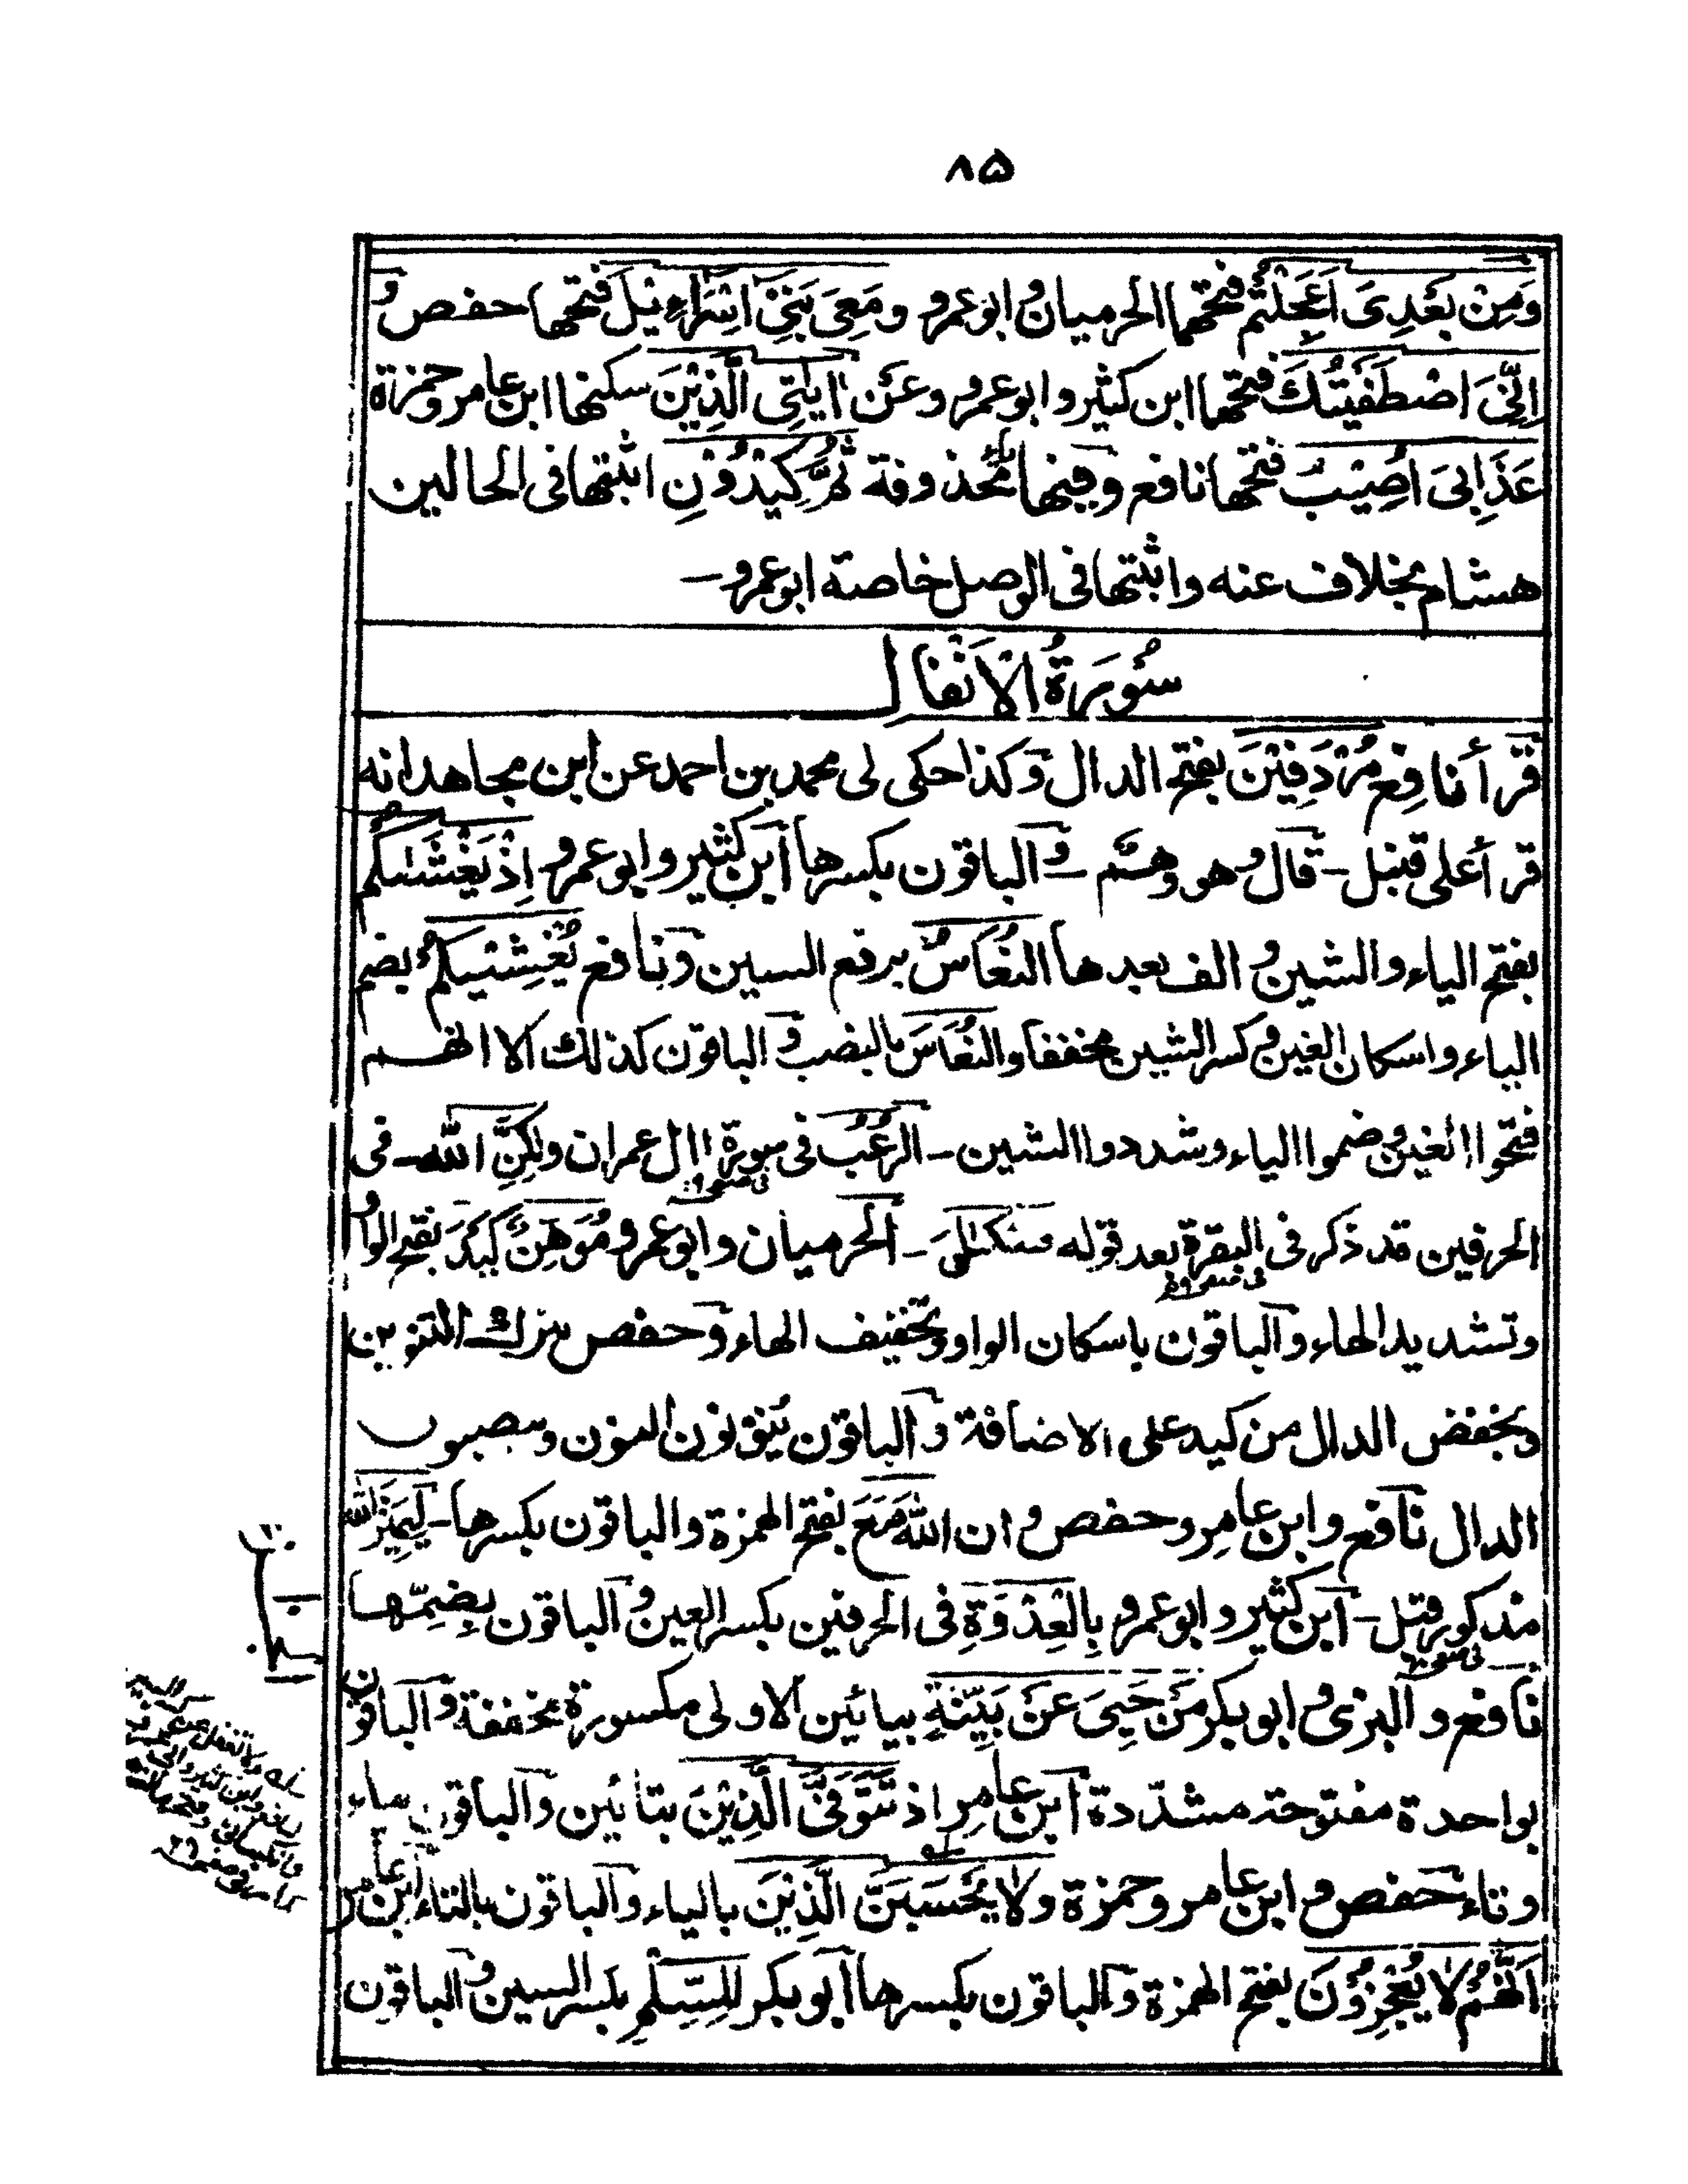 ٨٥
وَمِنْ بَعْدِىَ اَعَجِلْتُم فتحهما الحرميان وابو عمرو ومَعِىَ بَنِىْ اِسْرَاءِيْلَ فتحها حفص و
اِنِّىَ اصْطَفَيْتُكَ فتحها ابن كثير وابو عمرو وعَنْ اٰيٰتِى الَّذِيْنَ سكنها ابن عامر وحمزة
عَذَابِىَ اُصِيْبُ فتحها نافع وفيها ياء محذوفة ثُمَّ كِيْدُوْنِ اثبتها فى الحالين
هشام بخلاف عنه واثبتها فى الوصل خاصة ابو عمرو-
سُوْرَةُ الْاَنْفَال
قرأ نافع مُرْدَفِيْنَ بفتح الدال وكذا حكى لى محمد بن احمد عن ابن مجاهد انه
قرأ على قنبل- قال وهو وهَم- والباقون بكسرها ابن كثير وابو عمرو اِذْ يَغْشَىٰكُم
بفتح الياء والشين والف بعدها النُّعَاسُ برفع السين ونافع يُغْشِيْكُمُ بضم
الياء واسكان الغين وكسر الشين مخففا والنُّعَاسَ بالنصب والباقون كذلك الا انهم
فتحوا الغين وضموا الياء وشددوا الشين- الرُّعُبَ فى سورة ال عمران ولٰكِنِ الله- فى
فى صفحہ
الحرفين قد ذكر فى البقرة بعد قوله مِيْكٰلَ- الحرميان وابو عمرو مُوَهِّنٌ كَيْدَ بفتح الواو
فى صفحہ
وتشديد الهاء والباقون باسكان الواو وتخفيف الهاء وحفص يترك التنوين
ويخفض الدال من كيد على الاضافة والباقون ينونون النون وينصبون
الدال نافع وابن عامر وحفص وان اللهَ مَعَ بفتح الهمزة والباقون بكسرها- لِيَمِيْزَ اللهُ
مذكور قبل- ابن كثير وابو عمرو بِالْعِدْوَةِ فى الحرفين بكسر العين والباقون بضمّها
فى صفحہ
نافع والبزى وابو بكر مَنْ حَيِىَ عَنْ بَيِّنَةٍ بيائين الاولى مكسورة مخففة والباقون
بواحدة مفتوحة مشدّدة ابن عامر اذ تَتَوَفَّى الَّذِيْنَ بتائين والباقون بياء
وتاء حفص وابن عامر وحمزة ولا يَحْسَبَنَّ الَّذِيْنَ بالياء والباقون بالتاء ابن عامر
اَنَّهُمْ لَا يُعْجِزُوْنَ بفتح الهمزة والباقون بكسرها ابو بكر لِلسِّلْمِ بكسر السين والباقون